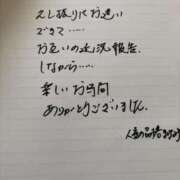 久し振りにお逢い
できて……
お互いの近況報告.
しながら……
楽しいお時間
ありがとうございました.